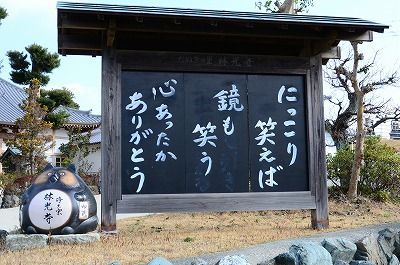 にっこり
笑えば
鏡も
笑う
心あったか
ありがとう
林光寺